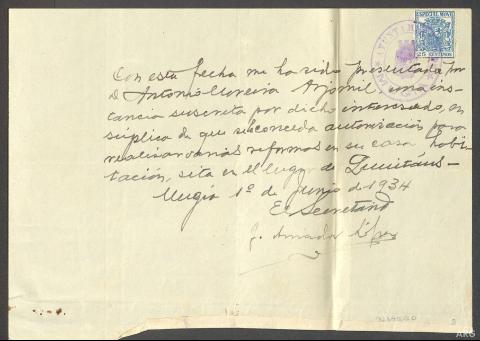 ESPECIAL MOVIL
25 CENTIMOS
AYUNTAM
Con esta fecha me ha sido presentada por
D Antonio Moreira Arjomil, una ins-
tancia suscrita por dicho interesado, en
súplica de que se conceda autorización para
realisar varias reformas en su casa habi-
tación, sita en el lugar de
Mugia 1º de Junio de 1934
El Secretario
J. Amador López
ARG